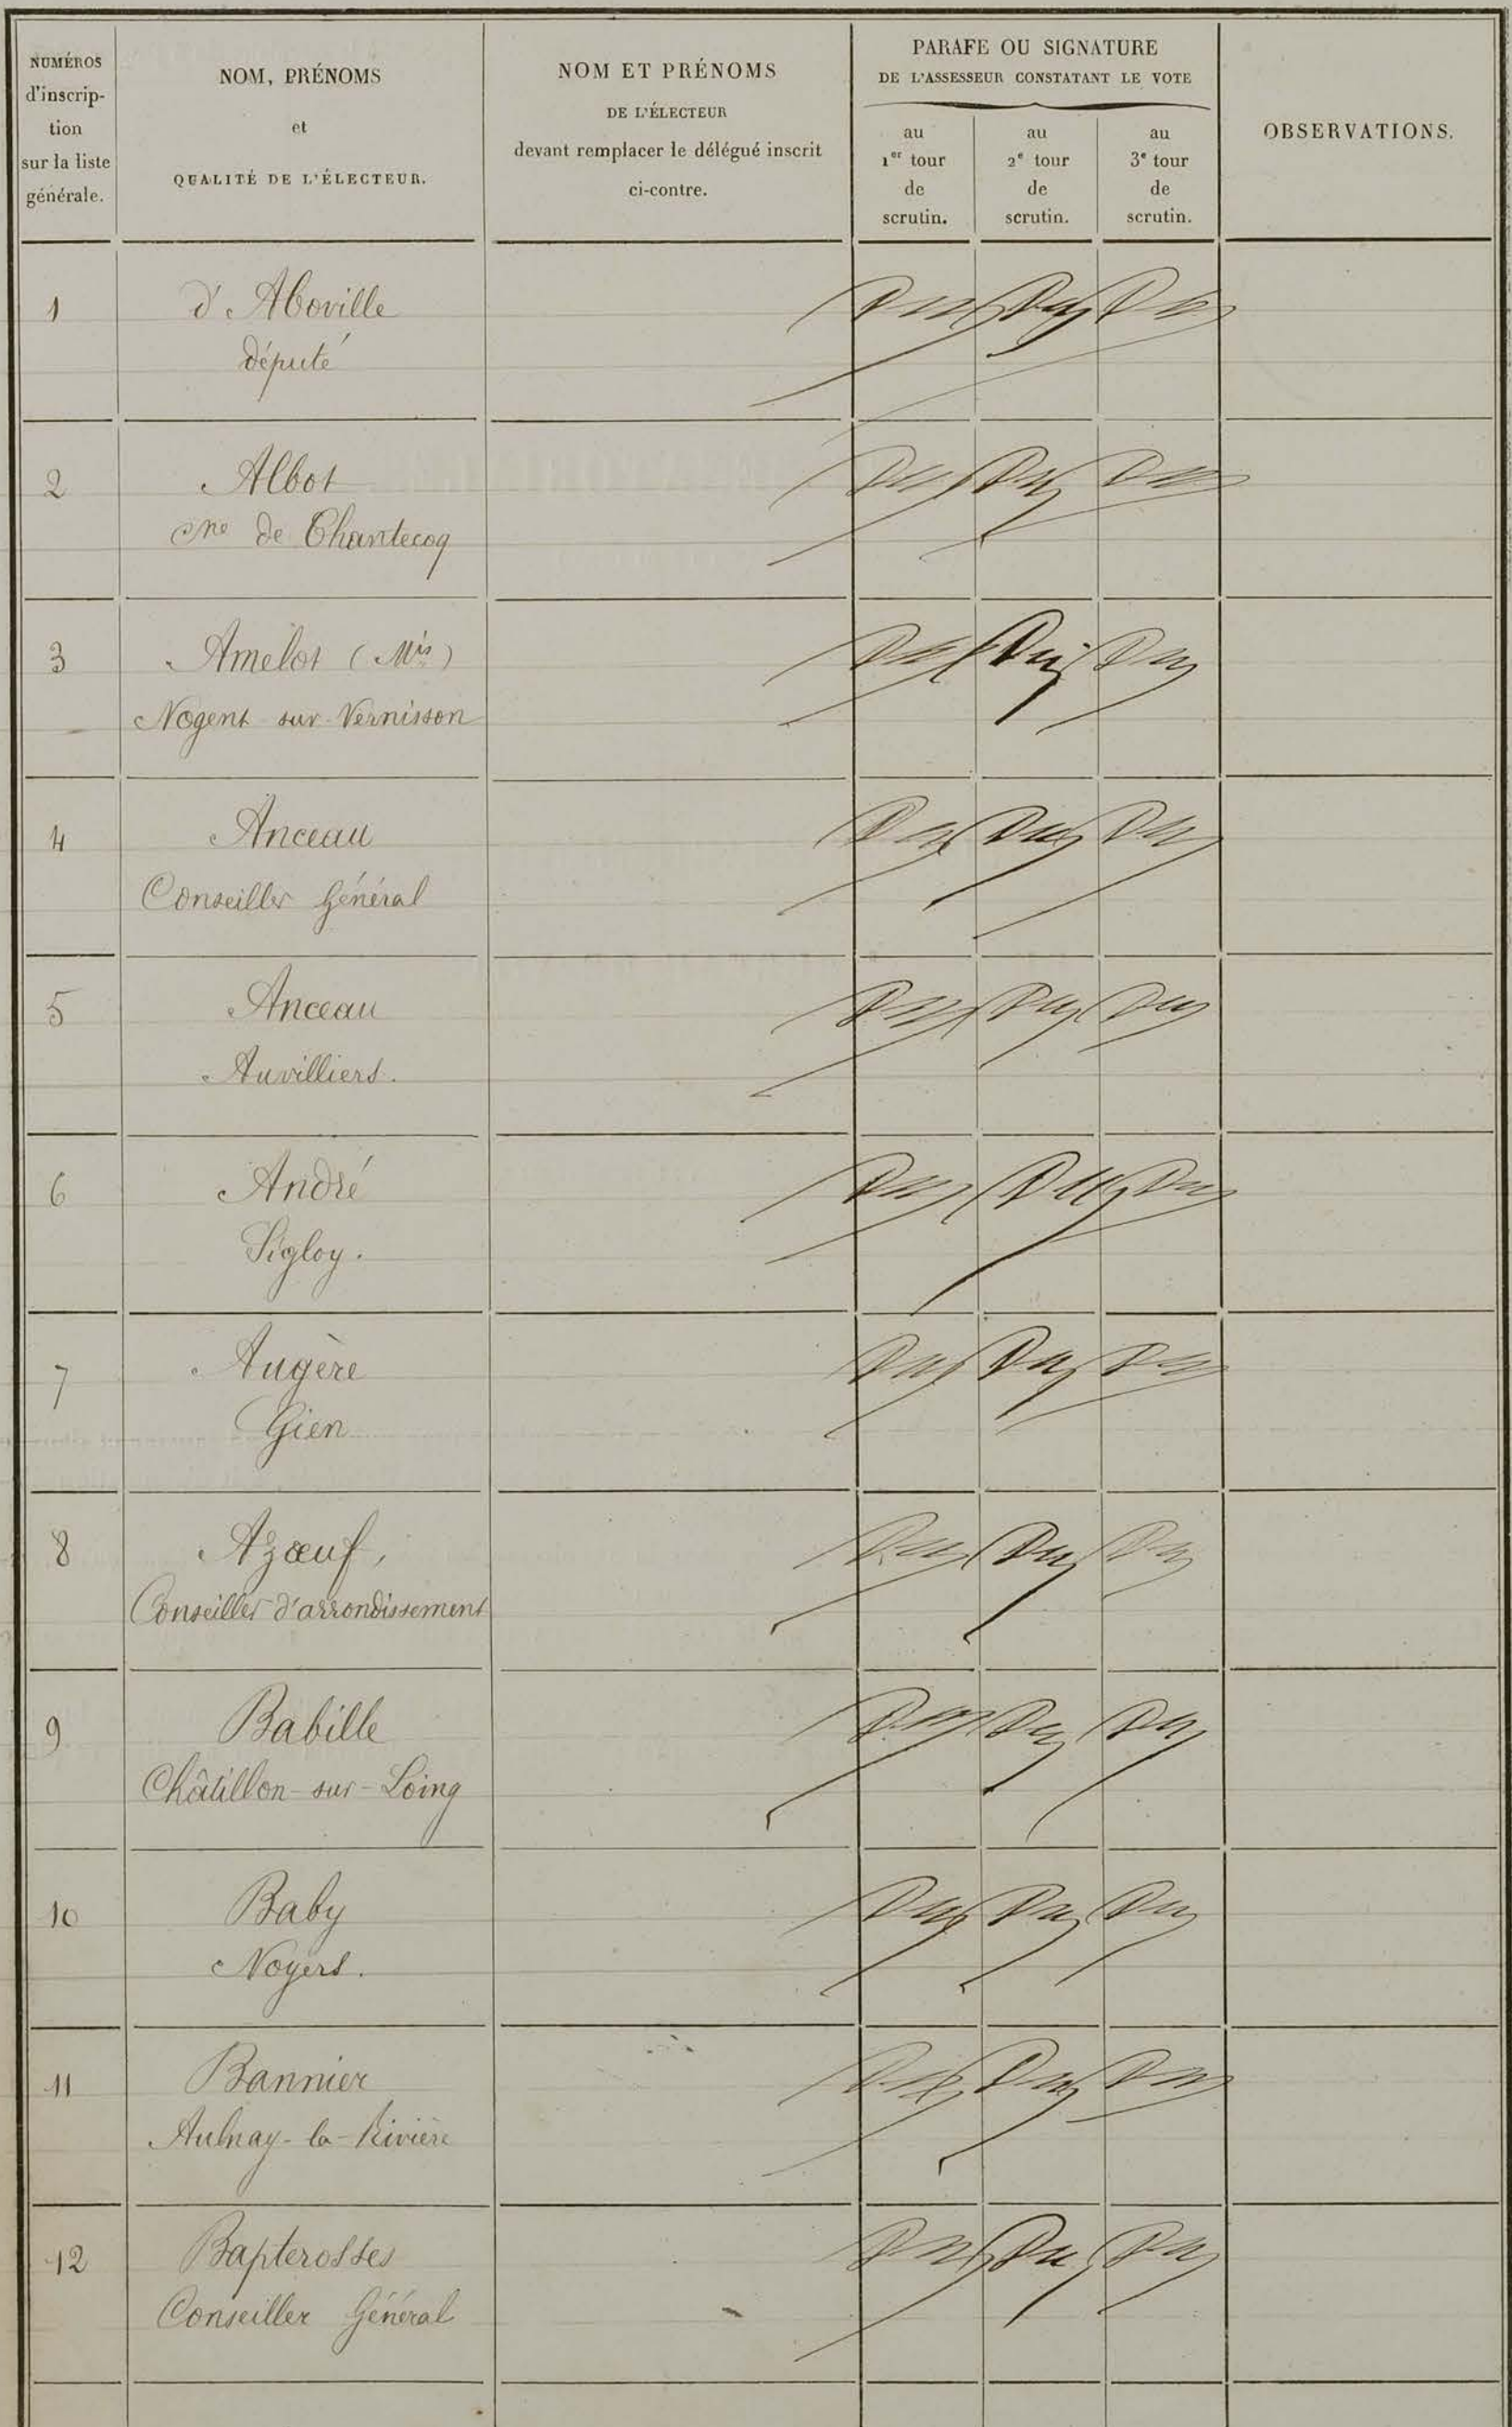 NUMÉROS
d'inscrip-
tion
sur la liste
générale.
NOM, PRÉNOMS
et
QUALITÉ DE L'ÉLECTEUR.
NOM ET PRÉNOMS
DE L'ÉLECTEUR
devant remplacer le délégué inscrit
ci-contre.
PARAFE OU SIGNATURE
DE L'ASSESSEUR CONSTATANT LE VOTE
au
1er tour
de
scrutin.
au
2e tour
de
scrutin.
au
3e tour
de
scrutin.
OBSERVATIONS.
1 d'Aboville
Député
2 Albot
de Chantecoq
3 Amelot (Mis)
Nogent-sur-Vernisson
4 Anceau
Conseiller Général
5 Anceau
Auvilliers.
6 André
Sigloy.
7 Augère
Gien
8 Azœuf,
Conseiller d'arrondissement
9 Babille
Châtillon-sur-Loing
10 Baby
Noyers.
11 Bannier
Aulnay-la-Rivière
12 Bapterosses
Conseiller Général